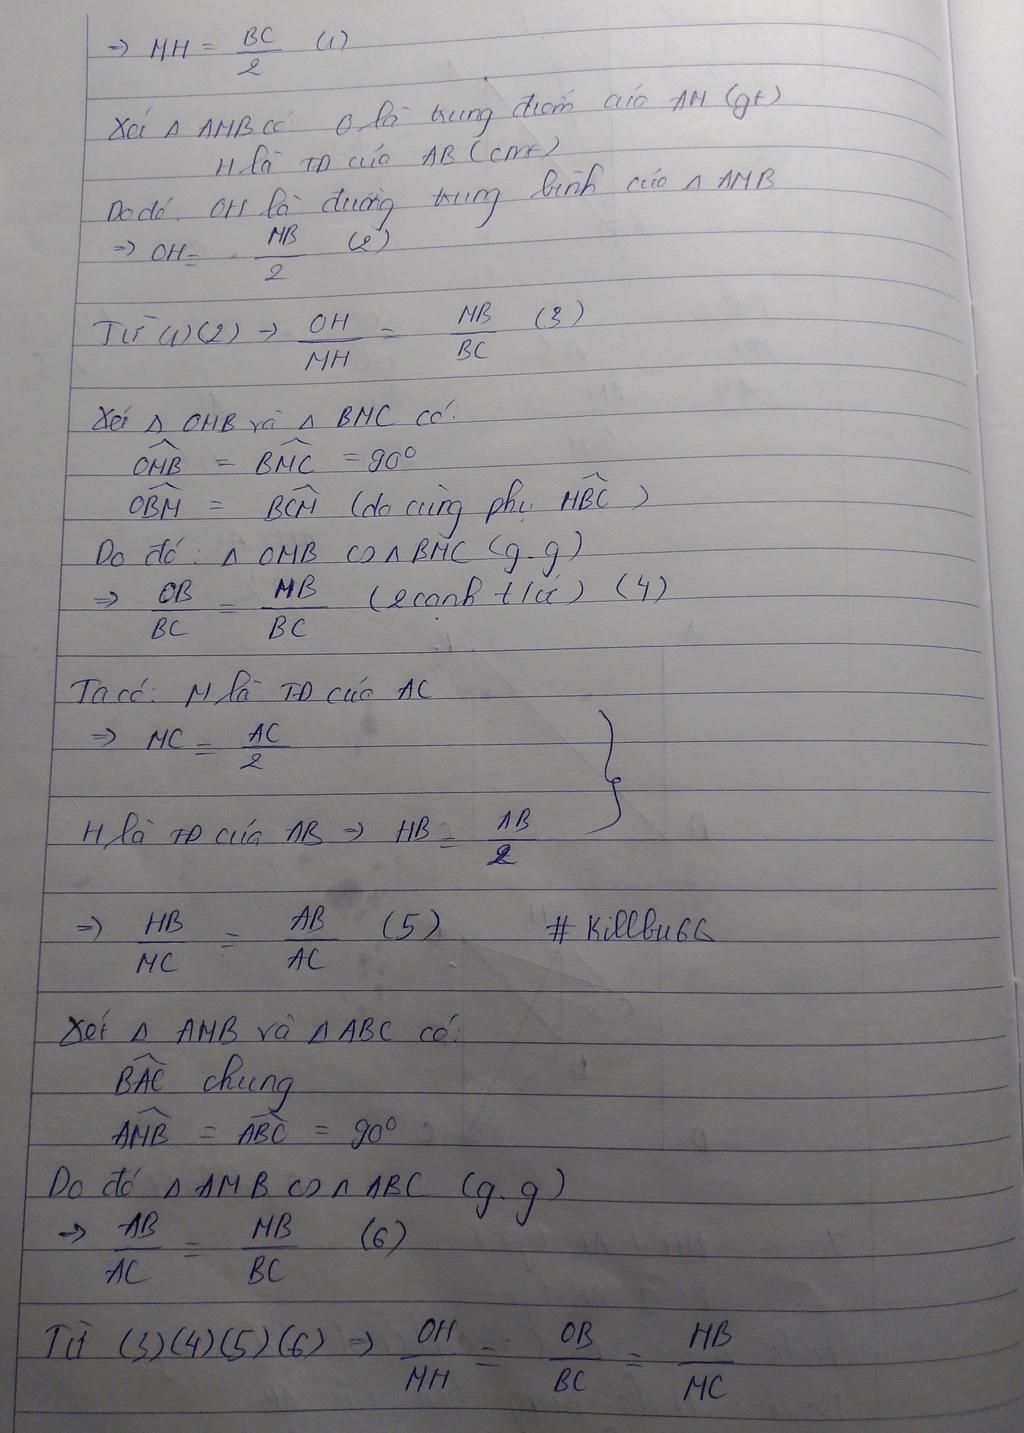 => MH = BC/2 (1)
Xét Δ AMB có: O là trung điểm của AM (gt)
H là TĐ của AB (cmt)
Do đó: OH là đường trung bình của Δ AMB
=> OH = MB/2 (2)
Từ (1)(2) => OH/MH = MB/BC (3)
Xét Δ OMB và Δ BMC có:
OMB = BMC = 90°
OBM = BCM (do cùng phụ MBC)
Do đó: Δ OMB ∽ Δ BMC (g.g)
=> OB/BC = MB/BC (2 cạnh t/ứ) (4)
Ta có: M là TĐ của AC
=> MC = AC/2
H là TĐ của AB => HB = AB/2
=> HB/MC = AB/AC (5) # Killbu66
Xét Δ AMB và Δ ABC có:
BAC chung
AMB = ABC = 90°
Do đó Δ AMB ∽ Δ ABC (g.g)
=> AB/AC = MB/BC (6)
Từ (3)(4)(5)(6) => OH/MH = OB/BC = HB/MC